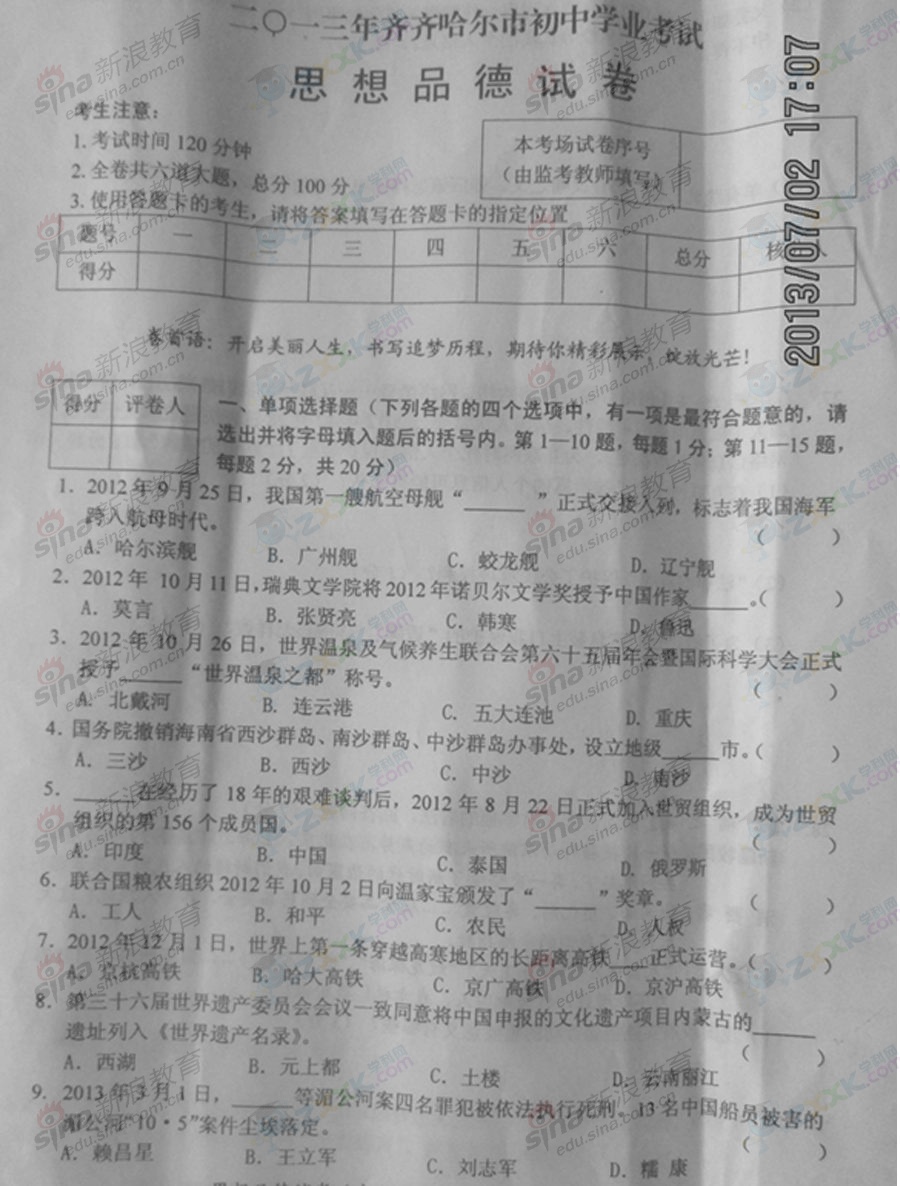 二〇一三年齐齐哈尔市初中学业考试
思想品德试卷
考生注意：
1. 考试时间 120 分钟
2. 全卷共六道大题，总分 100 分
3. 使用答题卡的考生，请将答案填写在答题卡的指定位置
本考场试卷序号
（由监考教师填写）
2013/07/02 17:07
题号 一 二 三 四 五 六 总分 核分人
得分
卷首语：开启美丽人生，书写追梦历程，期待你精彩展示，绽放光芒！
得分 评卷人
一、单项选择题（下列各题的四个选项中，有一项是最符合题意的，请
选出并将字母填入题后的括号内。第 1—10 题，每题 1 分；第 11—15 题，
每题 2 分，共 20 分）
1. 2012 年 9 月 25 日，我国第一艘航空母舰“______”正式交接入列，标志着我国海军
跨入航母时代。 （ ）
A. 哈尔滨舰 B. 广州舰 C. 蛟龙舰 D. 辽宁舰
2. 2012 年 10 月 11 日，瑞典文学院将 2012 年诺贝尔文学奖授予中国作家______。（ ）
A. 莫言 B. 张贤亮 C. 韩寒 D. 鲁迅
3. 2012 年 10 月 26 日，世界温泉及气候养生联合会第六十五届年会暨国际科学大会正式
授予______“世界温泉之都”称号。 （ ）
A. 北戴河 B. 连云港 C. 五大连池 D. 重庆
4. 国务院撤销海南省西沙群岛、南沙群岛、中沙群岛办事处，设立地级______市。（ ）
A. 三沙 B. 西沙 C. 中沙 D. 南沙
5. ______在经历了 18 年的艰难谈判后，2012 年 8 月 22 日正式加入世贸组织，成为世贸
组织的第 156 个成员国。 （ ）
A. 印度 B. 中国 C. 泰国 D. 俄罗斯
6. 联合国粮农组织 2012 年 10 月 2 日向温家宝颁发了“______”奖章。 （ ）
A. 工人 B. 和平 C. 农民 D. 人权
7. 2012 年 12 月 1 日，世界上第一条穿越高寒地区的长距离高铁____正式运营。（ ）
A. 京杭高铁 B. 哈大高铁 C. 京广高铁 D. 京沪高铁
8. 第三十六届世界遗产委员会会议一致同意将中国申报的文化遗产项目内蒙古的______
遗址列入《世界遗产名录》。 （ ）
A. 西湖 B. 元上都 C. 土楼 D. 云南丽江
9. 2013 年 3 月 1 日，______等湄公河案四名罪犯被依法执行死刑。13 名中国船员被害的
湄公河“10·5”案件尘埃落定。 （ ）
A. 赖昌星 B. 王立军 C. 刘志军 D. 糯 康